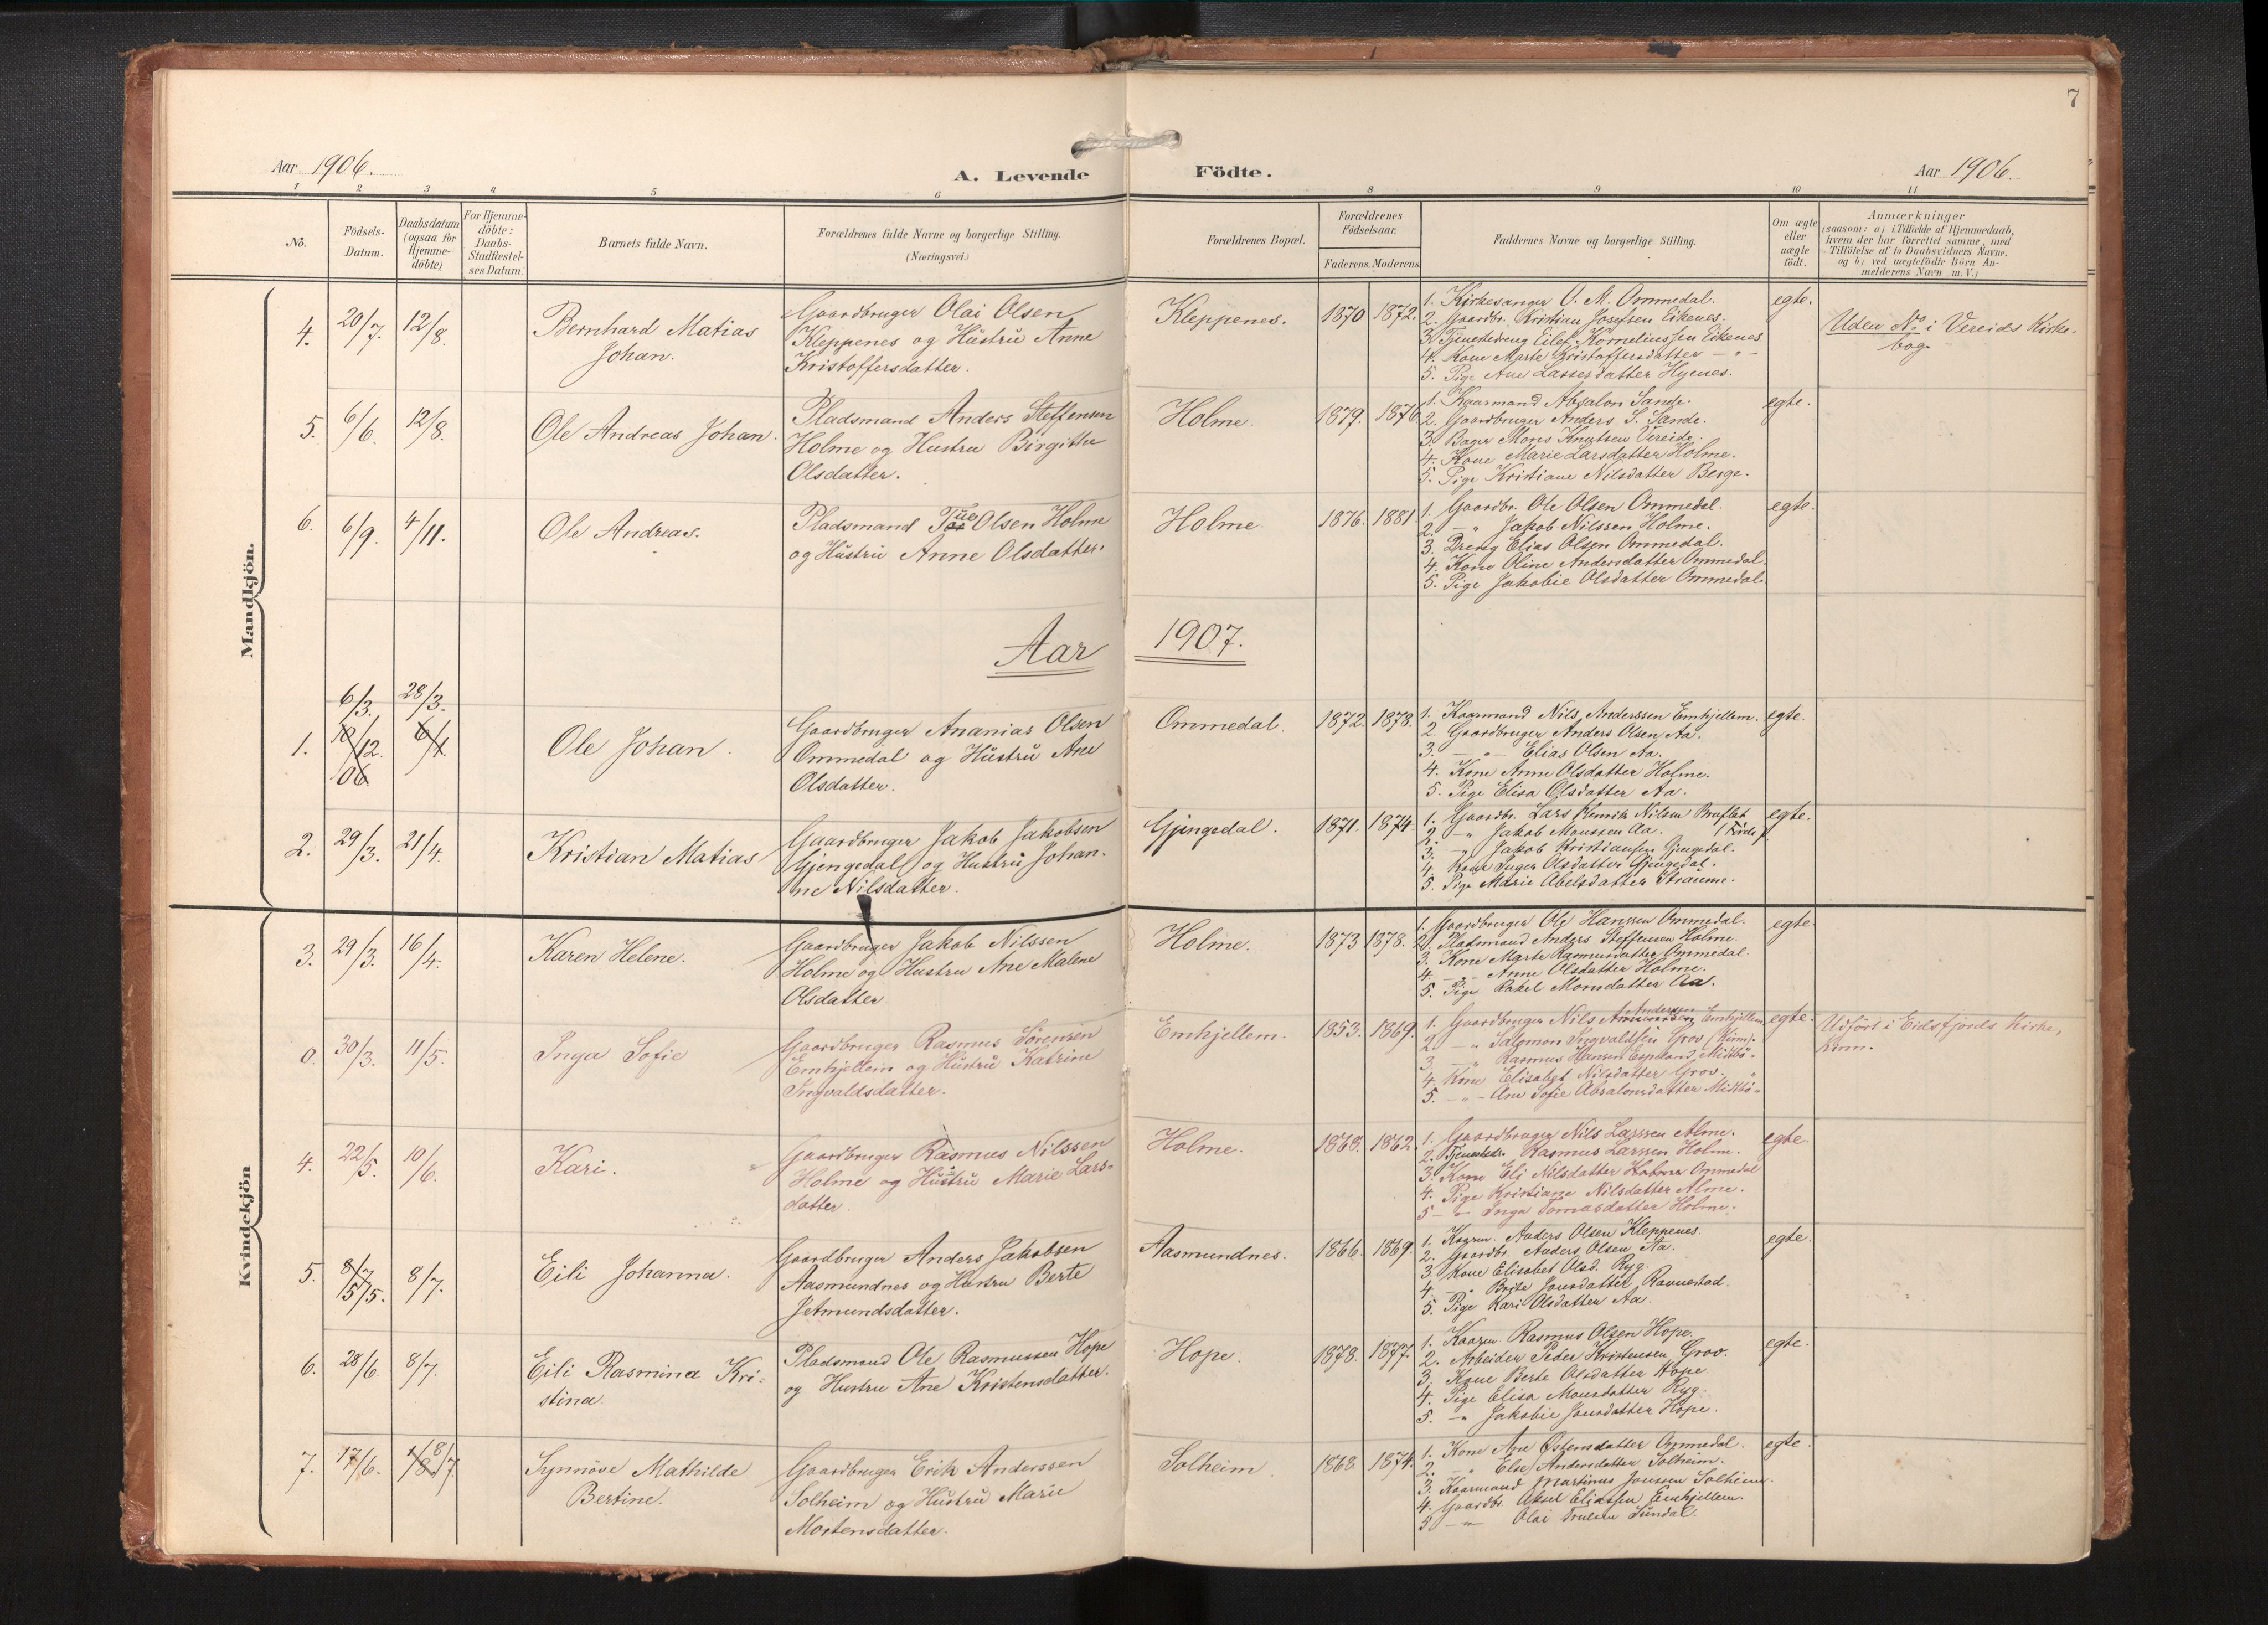 7
Aar 1906.
A. Levende Födte.
Aar 1906.
1 2 3 4 5 6 8 9 10 11
No.
Födsels-
Datum.
Daabsdatum
(ogsaa for
Hjemme-
döbte)
For Hjemme-
döbte:
Daabs-
Stadfæstel-
ses Datum.
Barnets fulde Navn.
Forældrenes fulde Navne og borgerlige Stilling.
(Næringsvei.)
Forældrenes Bopæl.
Forældrenes
Födselsaar.
Faderens. Moderens
Faddernes Navne og borgerlige Stilling.
Om ægte
eller
uægte
födt.
Anmærkninger
(saasom: a) i Tilfælde af Hjemmedaab,
hvem der har forrettet samme, med
Tilföielse af to Daabsvidners Navne.
og b) ved uægtefödte Börn An-
melderens Navn m. V.)
Mandkjön.
4. 20/7. 12/8.
Bernhard Matias
Johan.
Gaardbruger Olai Olsen
Kleppenes og Hustru Anne
Kristoffersdatter.
Kleppenes. 1870 1872.
1. Kirkesanger O. M. Ommedal.
2. Gaardbr. Kristian Josefsen Eikenes.
3. Tjenestedreng Eilef Korneliussen Eikenes
4. Kone Marte Kristoffersdatter — " —
5. Pige Ane Lassesdatter Hyenes.
egte.
Uden No. i Vereids Kirke-
bog.
5. 6/6. 12/8.
Ole Andreas Johan.
Pladsmand Anders Steffensen
Holme og Hustru Birgitte
Olsdatter.
Holme. 1879. 1876.
1. Kaarmand Absalon Sande.
2. Gaardbruger Anders S. Sande.
3. Bager Mons Knutsen Vereide.
4. Kone Marie Larsdatter Holme.
5. Pige Kristiane Nilsdatter Berge.
egte.
6. 6/9. 4/11.
Ole Andreas.
Pladsmand Olsen Holme
og Hustru Anne Olsdatter.
Holme. 1876. 1881.
1. Gaardbr. Ole Olsen Ommedal.
2. — " Jakob Nilssen Holme.
3. Dreng Elias Olsen Ommedal.
4. Kone Oline Andersdatter Ommedal.
5. Pige Jakobie Olsdatter Ommedal.
egte.
Aar 1907.
6/3. 28/3.
1. 10/12. 06 6/1
Ole Johan.
Gaardbruger Ananias Olsen
Ommedal og Hustru Ane
Olsdatter.
Ommedal. 1872. 1878.
1. Kaarmand Nils Anderssen Emhjellem.
2. Gaardbruger Anders Olsen Aa.
3. — " — Elias Olsen Aa.
4. Kone Anne Olsdatter Holme.
5. Pige Elisa Olsdatter Aa.
egte.
2. 29/3. 21/4.
Kristian Matias
Gaardbruger Jakob Jakobsen
Gjengedal og Hustru Johan-
ne Nilsdatter.
Gjengedal. 1871. 1874.
1. Gaardbr. Lars Henrik Nilsen Bruflat
2. " Jakob Monssen Aa. (Förde)
3. " Jakob Kristiansen Gjengedal.
4. Kone Inger Olsdatter Gjengedal.
5. Pige Marie Abelsdatter Straume.
egte.
Kvindekjön
3. 29/3. 16/4.
Karen Helene.
Gaardbruger Jakob Nilssen
Holme og Hustru Ane Malene
Olsdatter.
Holme. 1873 1878.
1. Gaardbruger Ole Hanssen Ommedal.
2. Pladsmand Anders Steffensen Holme.
3. Kone Marte Rasmusdatter Ommedal.
4. — " — Anne Olsdatter Holme.
5. Pige Rakel Monsdatter Aa.
egte
0. 30/3. 11/5.
Inga Sofie
Gaardbruger Rasmus Sörensen
Emhjellem og Hustru Katrine
Ingvaldsdatter.
Emhjellem. 1853. 1869.
1. Gaardbruger Nils Anderssen Emhjellem
2. — " Salomon Ingvaldsen Grov (Kinn).
3. " Rasmus Hansen Espeland, Midtbö "
4. Kone Elisabet Nilsdatter Grov. "
5. — " — Ane Sofie Absalonsdatter Midtbö "
egte.
Udfört i Eidsfjords Kirke,
Kinn.
4. 22/5. 10/6.
Kari.
Gaardbruger Rasmus Nilssen
Holme og Hustru Marie Lars-
datter.
Holme. 1868. 1862.
1. Gaardbruger Nils Larssen Alme.
2. Tjenestedr. Rasmus Larssen Holme.
3. Kone Eli Nilsdatter Holme Ommedal
4. Pige Kristiane Nilsdatter Alme.
5 — " — Inga Tomasdatter Holme.
egte.
5. 8/7 15/5. 8/7.
Eili Johanna.
Gaardbruger Anders Jakobsen
Aasmundnes og Hustru Berte
Jetmundsdatter.
Aasmundnes. 1866. 1869.
1. Kaarm. Anders Olsen Kleppenes.
2. Gaardbr. Anders Olsen Aa.
3. Kone Elisabet Olsd. Ryg.
4. — " Brite Jonsdatter Ravnestad.
5. Pige Kari Olsdatter Aa.
egte.
6. 28/6. 8/7.
Eili Rasmina Kri-
stina.
Pladsmand Ole Rasmussen Hope
og Hustru Ane Kristensdatter.
Hope. 1878. 1877.
1. Kaarm. Rasmus Olsen Hope.
2. Arbeider Peder Kristensen Grov.
3. Kone Berte Olsdatter Hope
4. Pige Elisa Monsdatter Ryg.
5. — " Jakobie Jonsdatter Hope.
egte.
7. 17/6. 18/7
Synnöve Mathilde
Bertine.
Gaardbruger Erik Anderssen
Solheim og Hustru Marie
Mortensdatter.
Solheim. 1868. 1874.
1. Kone Ane Östensdatter Ommedal.
2. — " Else Andersdatter Solheim.
3. Kaarmand Martinus Jonssen Solheim.
4. Gaardbr. Aksel Eliassen Emhjellem.
5 — " — Olai Sundal.
egte.